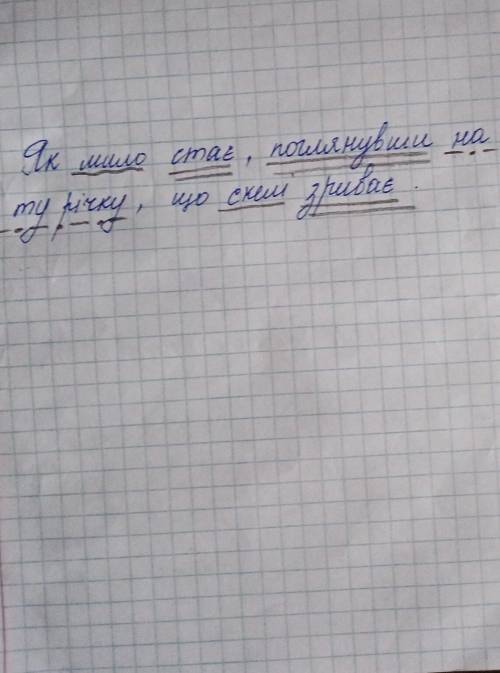 Як мило стає, поглянувши на
ту річку, що скелі зриває.